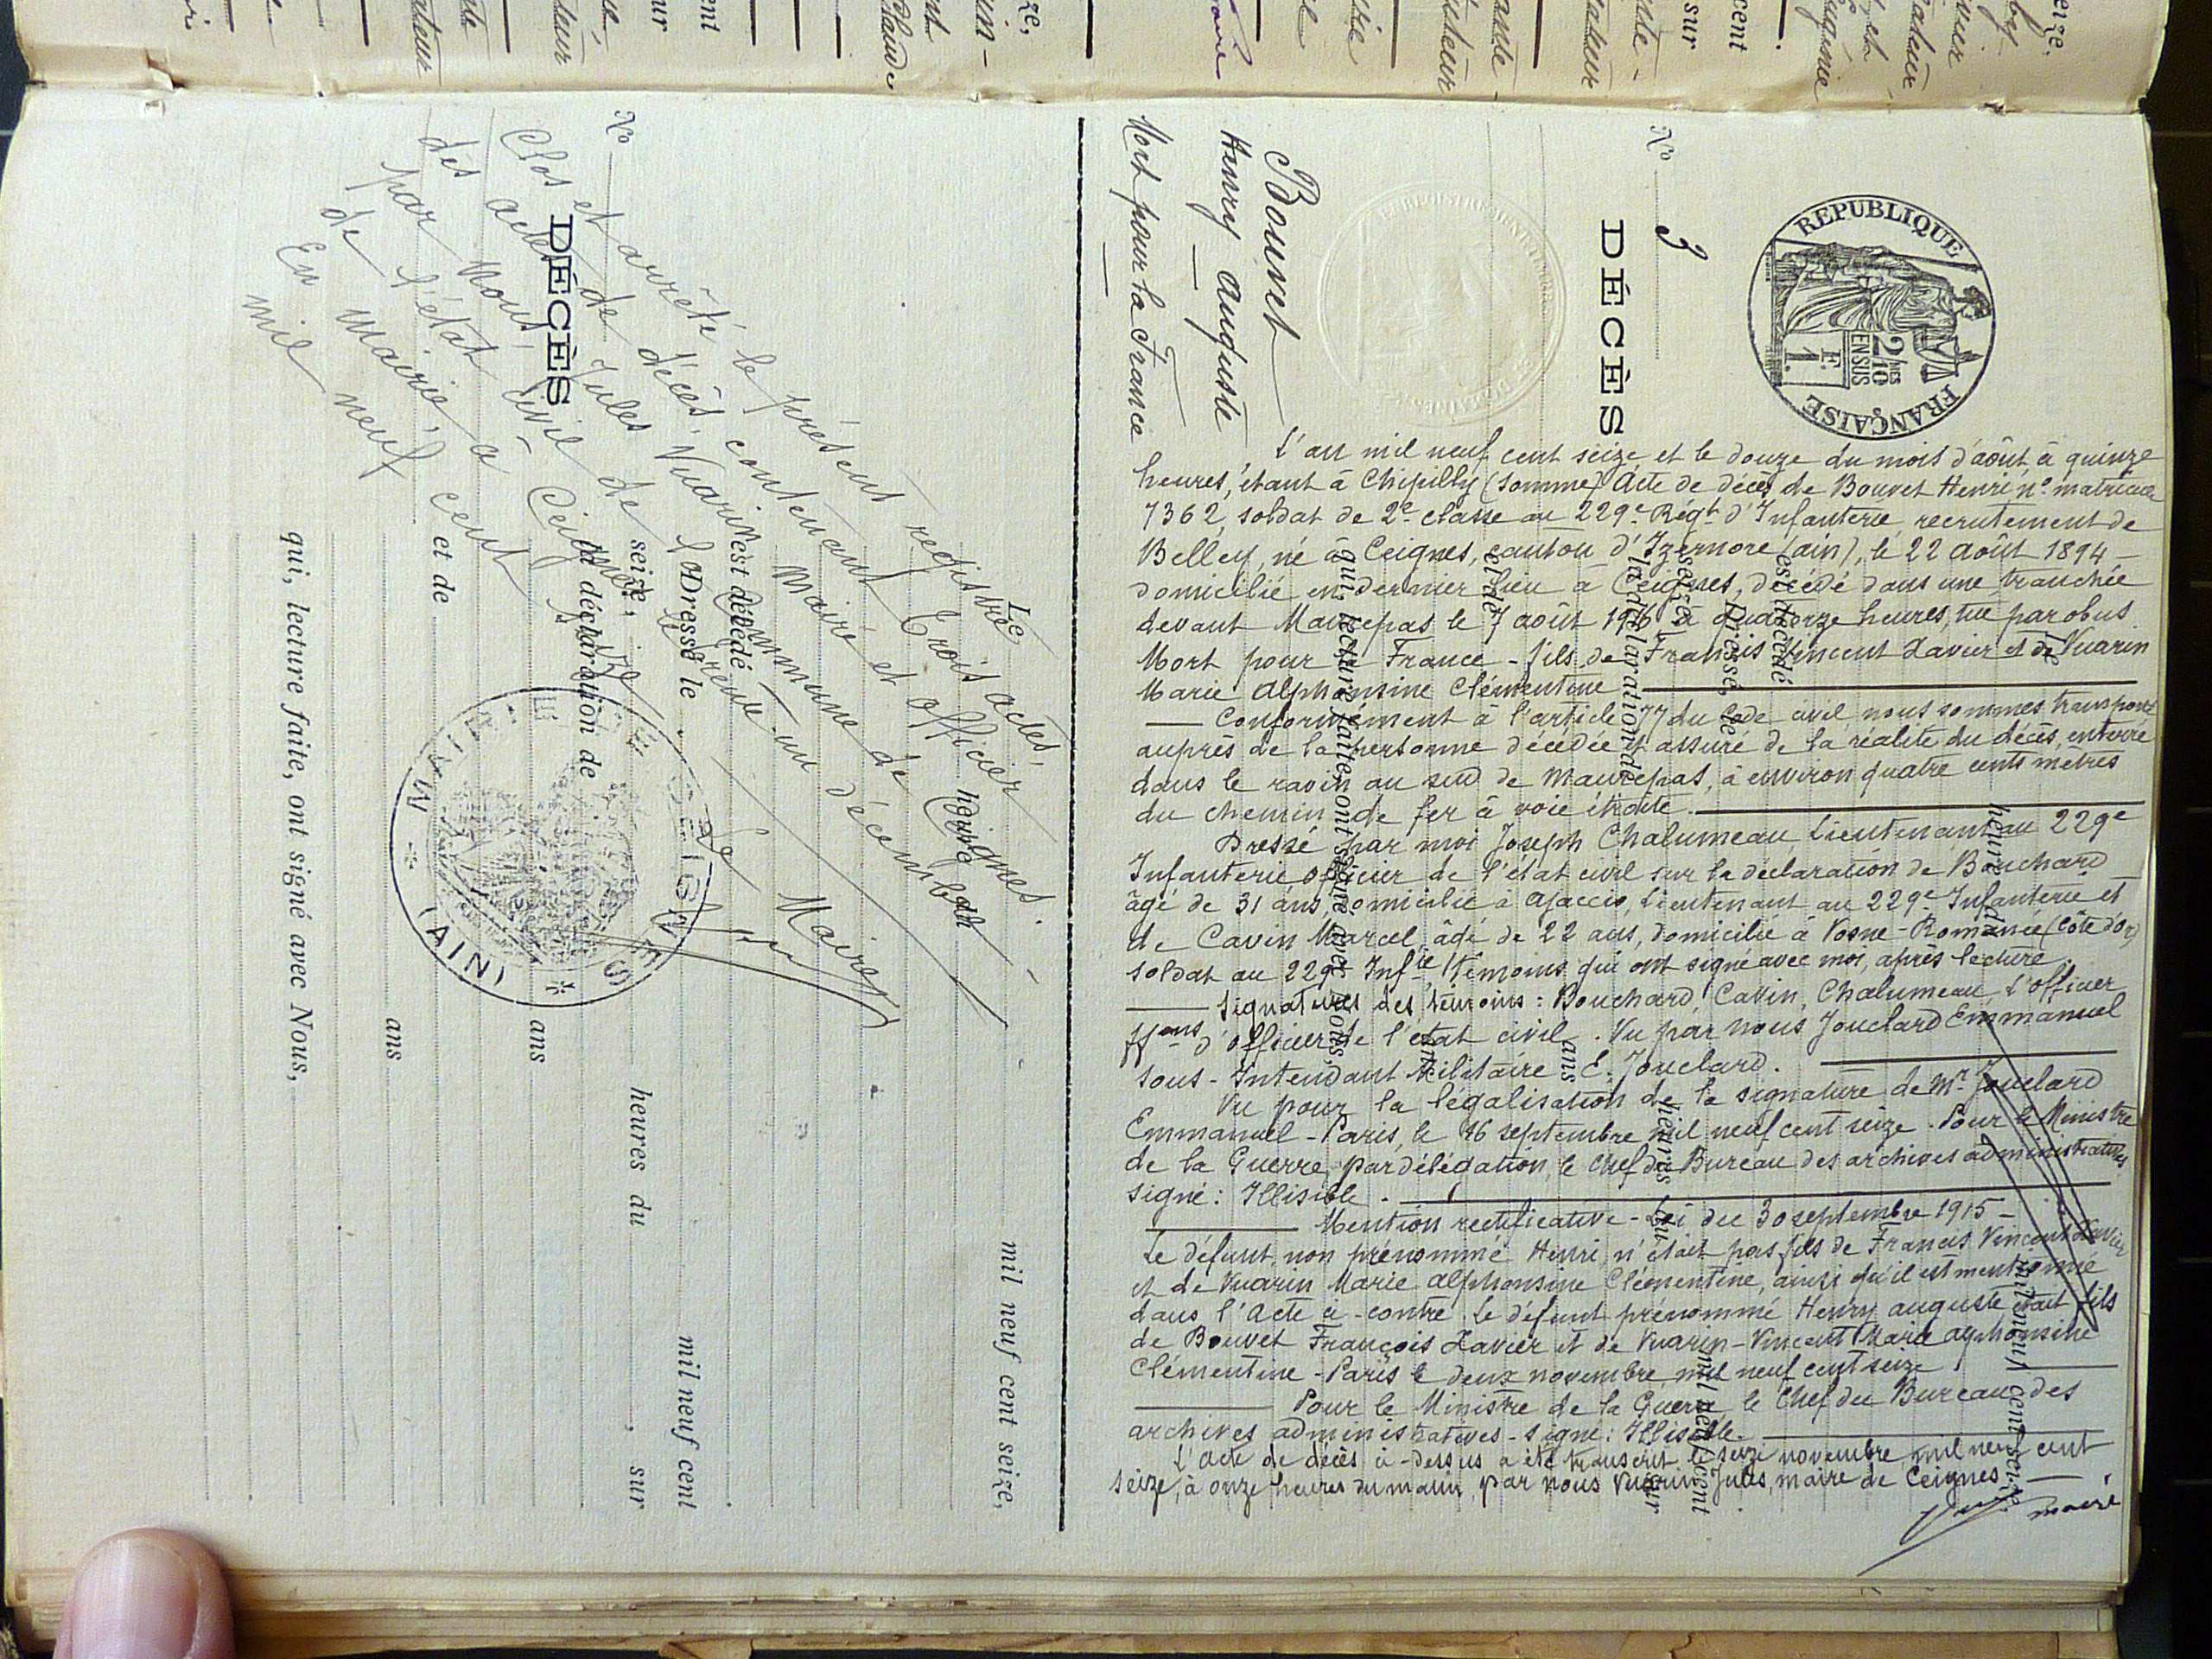 N° 3
DÉCÈS
RÉPUBLIQUE FRANÇAISE
2/10 MES EN SUS
1 F.
Bouvet
Henry Auguste
Mort pour la France
L'an mil neuf cent seize et le douze du mois d'août à quinze
heures, étant à Chipilly (Somme) Acte de décès de Bouvet Henri n° matricule
7362, soldat de 2e classe au 229e Régt d'Infanterie, recrutement de
Belley, né à Ceignes, canton d'Izernore (Ain), le 22 août 1894 -
domicilié en dernier lieu à Ceignes, décédé dans une tranchée
devant Maurepas le 7 août 1916 à quatorze heures, tué par obus
Mort pour la France - fils de Francis Vincent Xavier et de Vuarin
Marie Alphonsine Clémentine
Conformément à l'article 77 du Code civil nous sommes transporté
auprès de la personne décédée et assuré de la réalité du décès, enterré
dans le ravin au sud de Maurepas, à environ quatre cents mètres
du chemin de fer à voie étroite.
Dressé par moi Joseph Chalumeau Lieutenant au 229e
Infanterie officier de l'état civil sur la déclaration de Bouchard
âgé de 31 ans, domicilié à Ajaccio, Lieutenant au 229e Infanterie et
de Cavin Marcel, âgé de 22 ans, domicilié à Vosne-Romanée (Côte d'or)
soldat au 229e Infie, témoins qui ont signé avec moi, après lecture.
Signatures des témoins : Bouchard, Cavin, Chalumeau, l'officier
ffons d'officier de l'état civil. Vu par nous Jouclard Emmanuel
sous-Intendant Militaire E. Jouclard.
Vu pour la légalisation de la signature de Mr Jouclard
Emmanuel - Paris, le 16 septembre mil neuf cent seize. Pour le Ministre
de la Guerre, par délégation, le Chef du Bureau des archives administratives
signé : Illisible.
Mention rectificative - Loi du 30 septembre 1915 -
Le défunt, non prénommé Henri, n'était pas fils de Francis Vincent Xavier
et de Vuarin Marie Alphonsine Clémentine, ainsi qu'il est mentionné
dans l'Acte ci-contre. Le défunt prénommé Henry Auguste était fils
de Bouvet François Xavier et de Vuarin-Vincent Marie Alphonsine
Clémentine - Paris le deux novembre mil neuf cent seize
Pour le Ministre de la Guerre, le Chef du Bureau des
archives administratives - signé : Illisible.
L'acte de décès ci-dessus a été transcrit le seize novembre mil neuf cent
seize, à onze heures du matin, par nous Vuarin Jules, maire de Ceignes
maire
Le
heure d
mil neuf cent seize,
est décédé
Dressé le
mil neuf cent
seize,
heures du
sur
la déclaration de
ans
et de
ans
qui, lecture faite, ont signé avec Nous,
N°
DÉCÈS
Le
heure d
mil neuf cent seize,
est décédé
Dressé le
mil neuf cent
seize,
heures du
, sur
la déclaration de
ans
et de
ans
qui, lecture faite, ont signé avec Nous,
Clos et arrêté le présent registre
des actes de décès contenant trois actes,
par Nous, Jules Vuarin Maire et officier
de l'état civil de la Commune de Ceignes.
En Mairie à Ceignes, le trente-un décembre
mil neuf cent seize
Le Maire,
MAIRIE DE CEIGNES
(AIN)